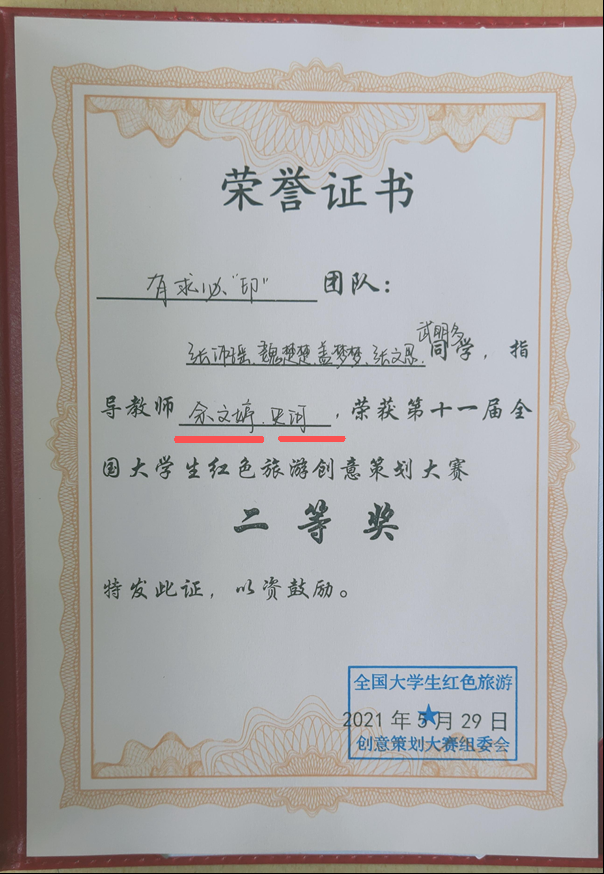 荣誉证书
有求必“印”团队：
武明多
张沛瑶、魏楚楚、盖梦梦、张文思、同学，指
导教师余文婷、，荣获第十一届全
国大学生红色旅游创意策划大赛
二等奖
特发此证，以资鼓励。
全国大学生红色旅游
2021年5月29日
创意策划大赛组委会